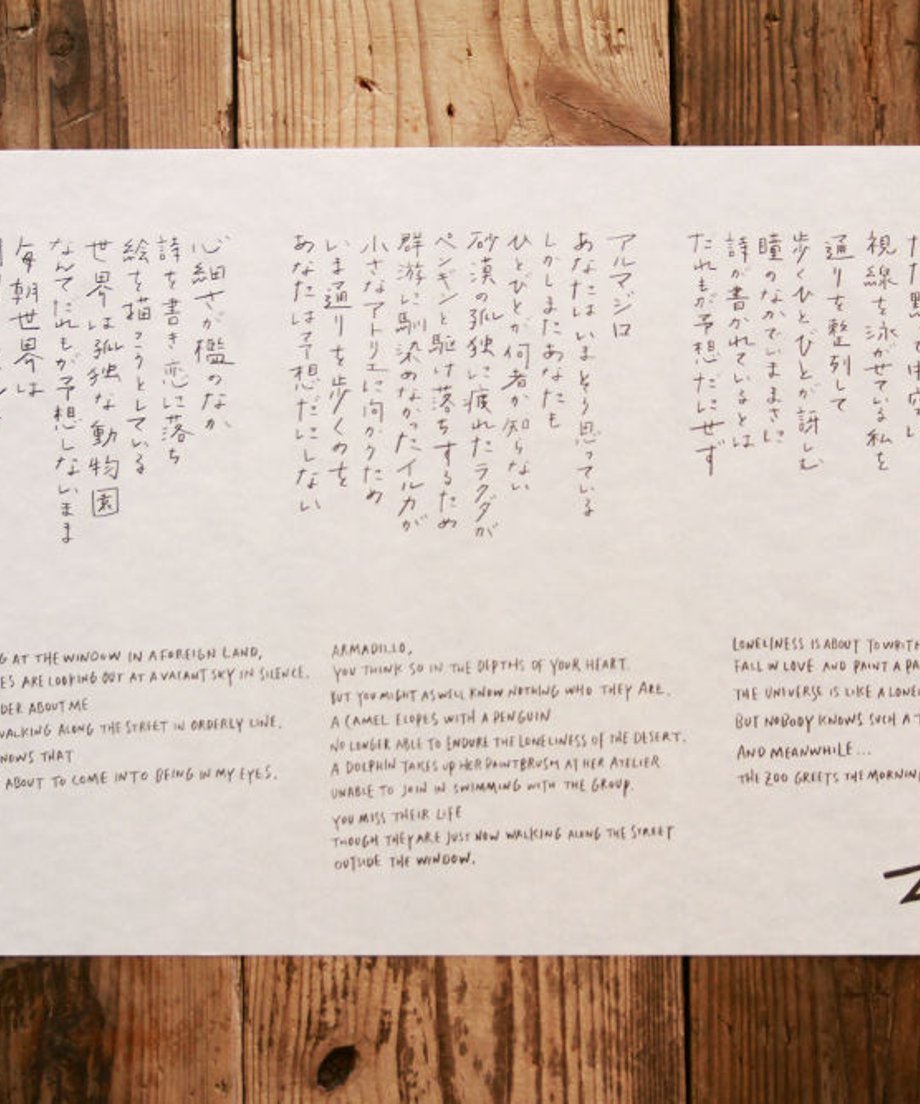 ただ黙って中空に
視線を泳がせている私を
通りを整列して
歩くひとびとが訝しむ
瞳のなかでいままさに
詩が書かれているとは
だれもが予想だにせず
アルマジロ
あなたはいまそう思っている
しかしまたあなたも
ひとびとが何者か知らない
砂漠の孤独に疲れたラクダが
ペンギンと駆け落ちするため
群游に馴染めなかったイルカが
小さなアトリエに向かうため
いま通りを歩くのを
あなたは予想だにしない
心細さが檻のなか
詩を書き恋に落ち
絵を描こうとしている
世界は孤独な動物園
なんてだれもが予想しないまま
毎朝世界は
G AT THE WINDOW IN A FOREIGN LAND,
ES ARE LOOKING OUT AT A VACANT SKY IN SILENCE.
DER ABOUT ME
WALKING ALONG THE STREET IN ORDERLY LINE.
NOWS THAT
ABOUT TO COME INTO BEING IN MY EYES.
ARMADILLO,
YOU THINK SO IN THE DEPTHS OF YOUR HEART.
BUT YOU MIGHT AS WELL KNOW NOTHING WHO THEY ARE.
A CAMEL ELOPES WITH A PENGUIN
NO LONGER ABLE TO ENDURE THE LONELINESS OF THE DESERT.
A DOLPHIN TAKES UP HER PAINTBRUSH AT HER ATELIER
UNABLE TO JOIN IN SWIMMING WITH THE GROUP.
YOU MISS THEIR LIFE
THOUGH THEY ARE JUST NOW WALKING ALONG THE STREET
OUTSIDE THE WINDOW.
LONELINESS IS ABOUT TO WRITE
FALL IN LOVE AND PAINT A PA
THE UNIVERSE IS LIKE A LONEL
BUT NOBODY KNOWS SUCH A T
AND MEANWHILE...
THE ZOO GREETS THE MORNIN